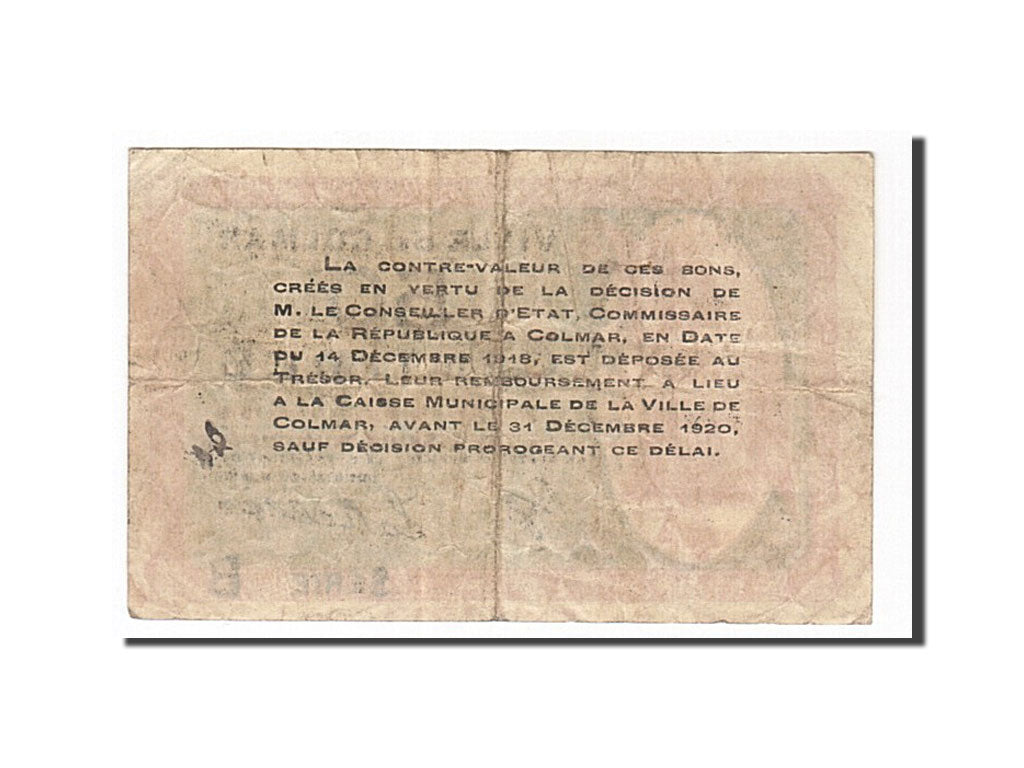 LA CONTRE-VALEUR DE CES BONS,
CRÉÉS EN VERTU DE LA DÉCISION DE
M. LE CONSEILLER D'ETAT, COMMISSAIRE
DE LA RÉPUBLIQUE A COLMAR, EN DATE
DU 14 DÉCEMBRE 1918, EST DÉPOSÉE AU
TRÉSOR. LEUR REMBOURSEMENT A LIEU
A LA CAISSE MUNICIPALE DE LA VILLE DE
COLMAR, AVANT LE 31 DÉCEMBRE 1920,
SAUF DÉCISION PROROGEANT CE DÉLAI.